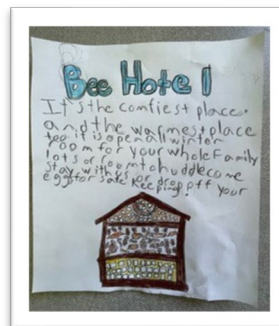 Bee Hotel
It's the comfiest place.
and the warmest place
too it is open all winter
room for your whole Family
lots of room to huddle come
stay with us or drop off your
eggs for safe keeping!